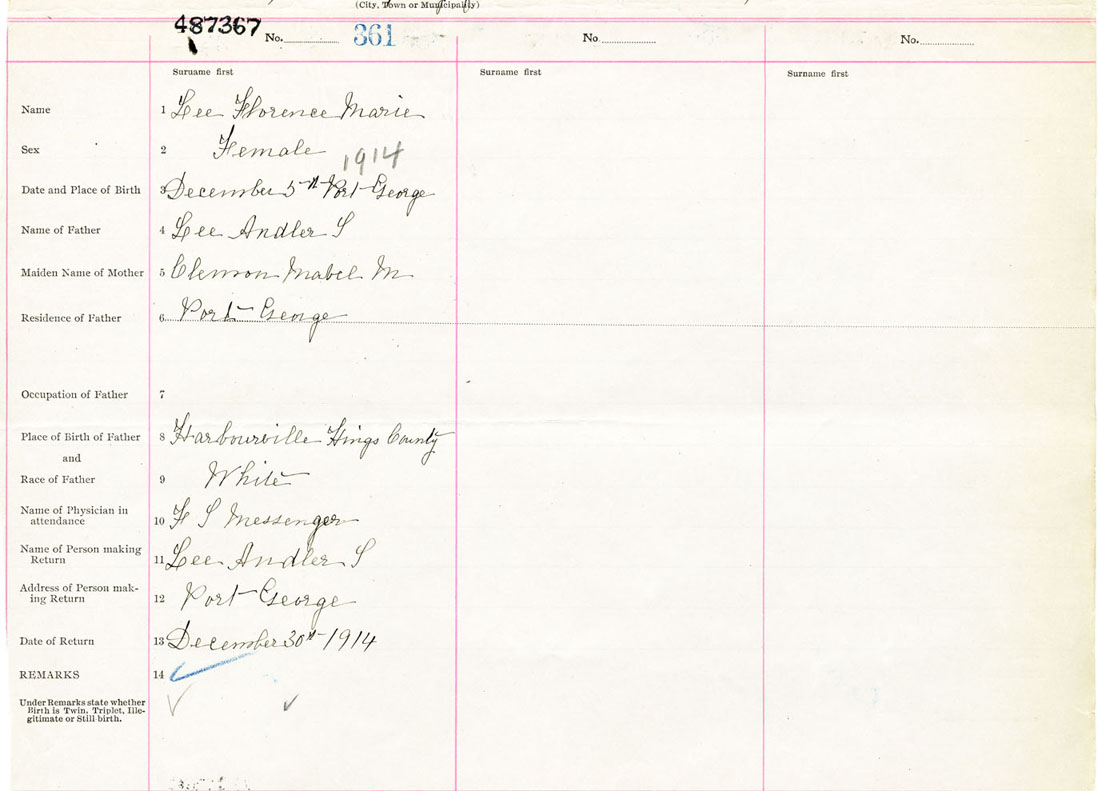 (City, Town or Municipality)
487367 No. 361 No. No.
Surname first Surname first Surname first
Name 1 Lee Florence Marie
Sex 2 Female
1914
Date and Place of Birth 3 December 5th Port George
Name of Father 4 Lee Andler S
Maiden Name of Mother 5 Clemson Mabel M
Residence of Father 6 Port George
Occupation of Father 7
Place of Birth of Father 8 Harbourville Kings County
and
Race of Father 9 White
Name of Physician in
attendance 10 F S Messenger
Name of Person making
Return 11 Lee Andler S
Address of Person mak-
ing Return 12 Port George
Date of Return 13 December 30th 1914
REMARKS 14
Under Remarks state whether
Birth is Twin, Triplet, Ille-
gitimate or Still-birth.